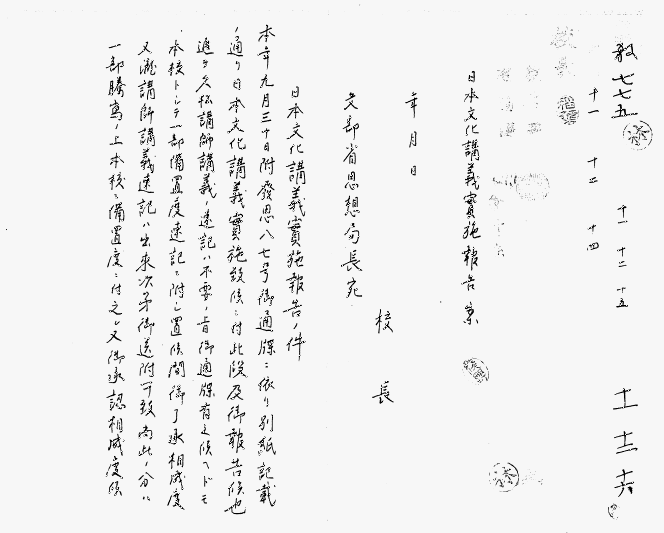 教七七五
十一 十二 十四
十一 十二 十五
十一 十二 十六
日本文化講義實施報告案
年月日
校長
文部省思想局長宛
日本文化講義實施報告ノ件
本年九月三十日附發思八七号御通牒ニ依リ別紙記載
ノ通リ日本文化講義實施致候ニ付此段及御報告候也
追テ久松講師講義ノ速記ハ不要ノ旨御通牒有之候ヘドモ
本校トシテ一部備置度速記ニ附シ置候間御了承相成度
又瀧講師講義速記ハ出來次第御送附可致尚此ノ分ハ
一部謄寫ノ上本校ニ備置度ニ付之レ又御承認相成度候